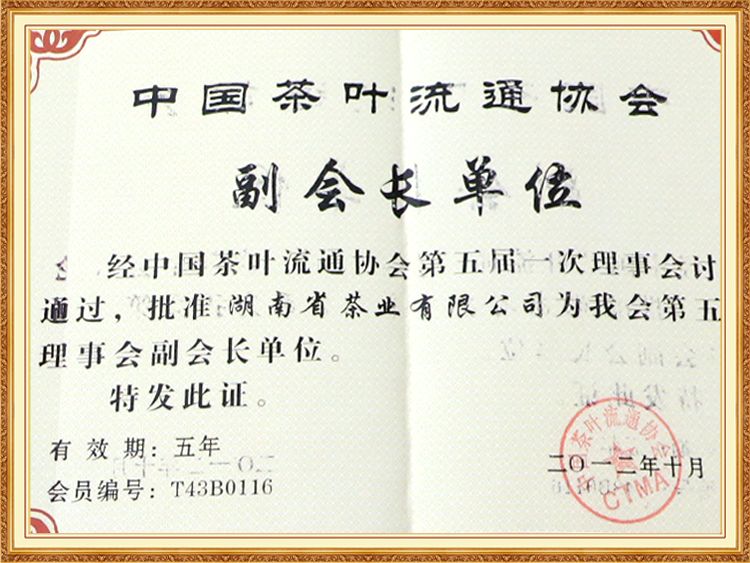 中国茶叶流通协会
副会长单位
经中国茶叶流通协会第五届一次理事会讨
通过，批准湖南省茶业有限公司为我会第五
理事会副会长单位。
特发此证。
有 效 期：五年
会员编号：T43B0116
二〇一二年十月
中国茶叶流通协会
CTMA